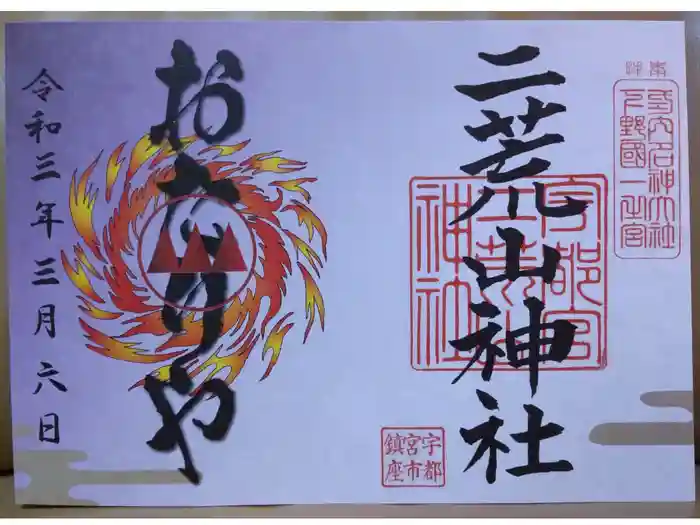 奉拝
延喜式内名神大社
下野國一之宮
二荒山神社
宇都宮
二荒山
神社
宇都
宮市
鎮座
おたりや
令和三年三月六日